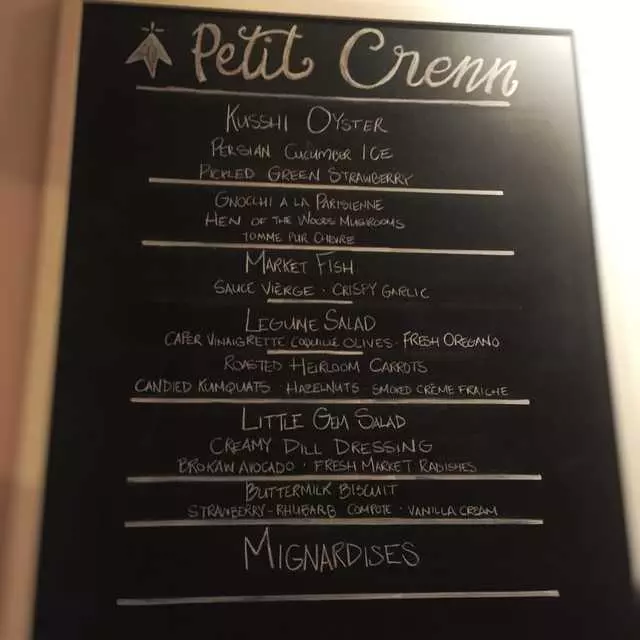 Petit Crenn
KUSSHI OYSTER
PERSIAN CUCUMBER ICE
PICKLED GREEN STRAWBERRY
GNOCCHI A LA PARISIENNE
HEN OF THE WOODS MUSHROOMS
TOMME PUR CHEVRE
MARKET FISH
SAUCE VIERGE · CRISPY GARLIC
LEGUME SALAD
CAPER VINAIGRETTE COQUILLO OLIVES · FRESH OREGANO
ROASTED HEIRLOOM CARROTS
CANDIED KUMQUATS HAZELNUTS SMOKED CRÈME FRAICHE
LITTLE GEM SALAD
CREAMY DILL DRESSING
BROKAW AVOCADO · FRESH MARKET RADISHES
BUTTERMILK BISCUIT
STRAWBERRY-RHUBARB COMPOTE · VANILLA CREAM
MIGNARDISES